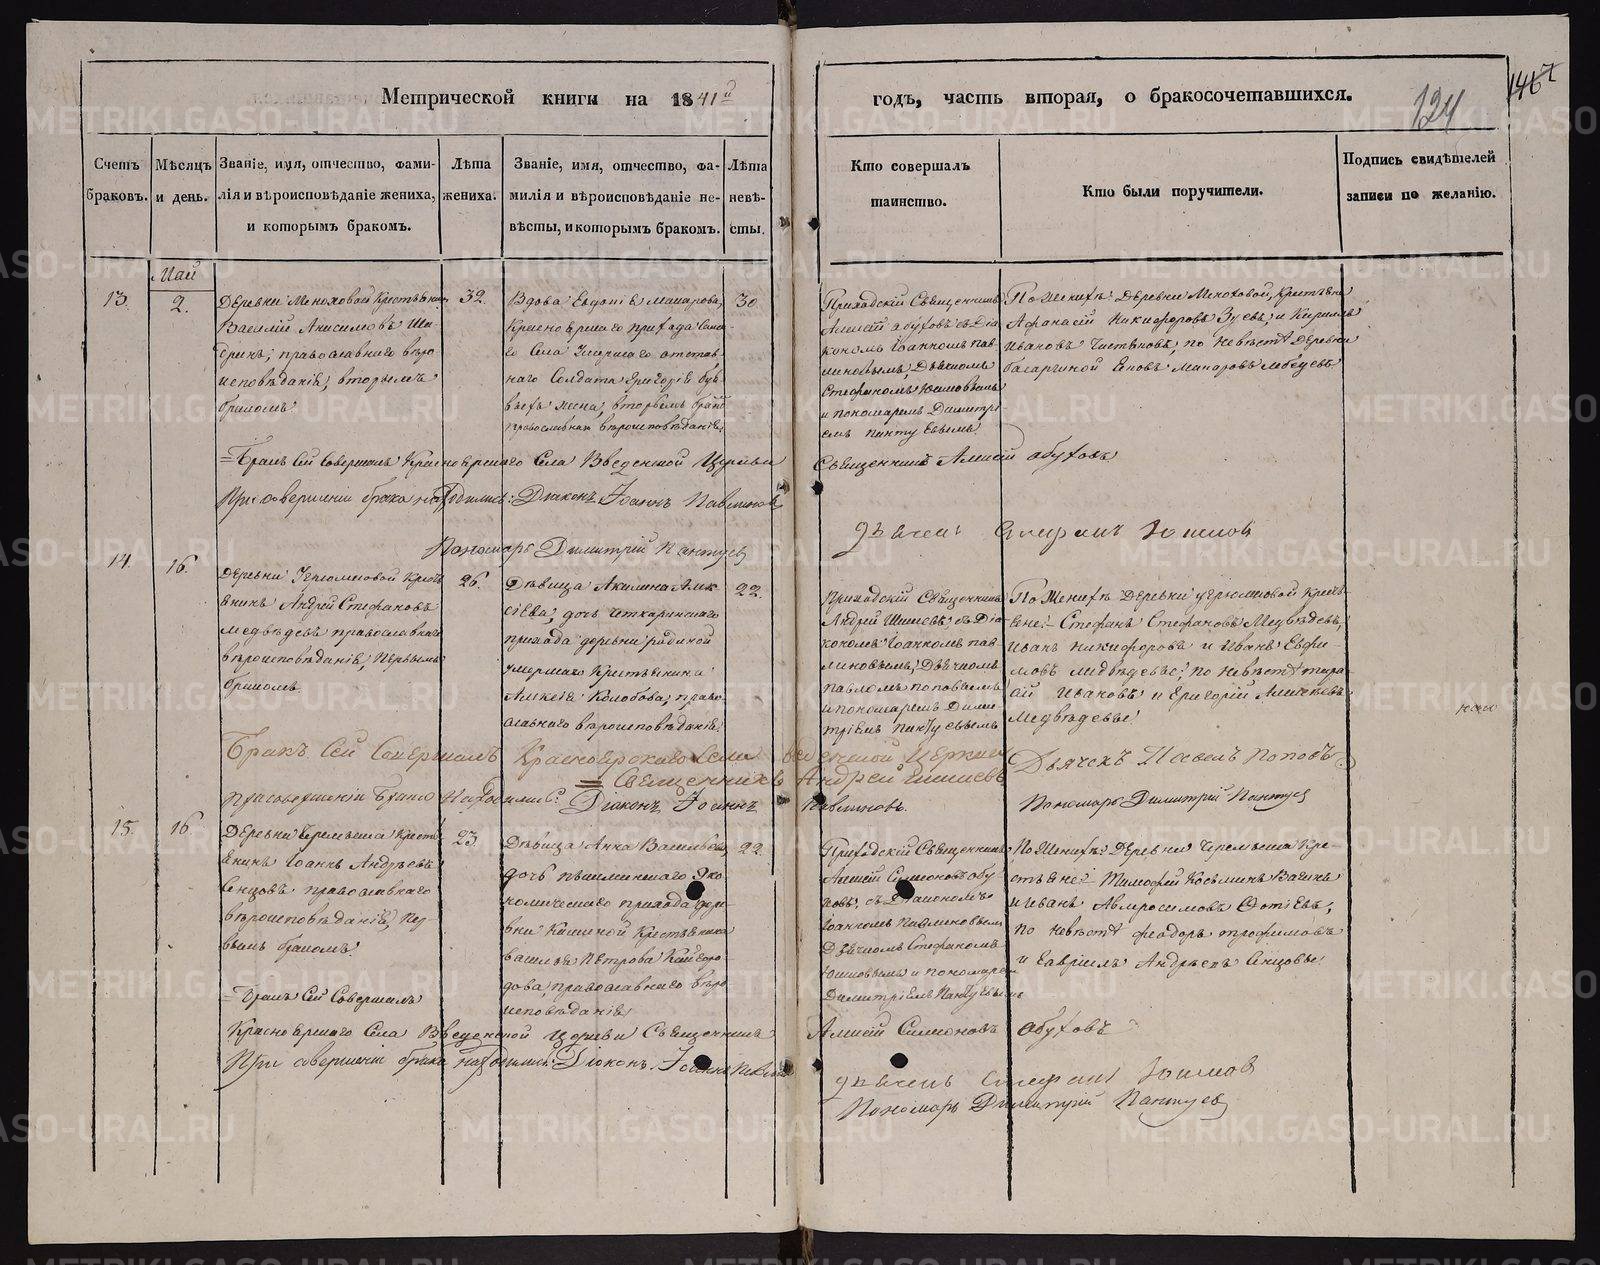 Метрической книги на 1841й
годъ, часть вторая, о бракосочетавшихся.
124
Счетъ браковъ.
Мѣсяцъ и день.
Званіе, имя, отчество, фами-
лія и вѣроисповѣданіе жениха,
и которымъ бракомъ.
Лѣта
жениха.
Званіе, имя, отчество, фа-
милія и вѣроисповѣданіе не-
вѣсты, и которымъ бракомъ.
Лѣта
невѣ-
сты.
Кто совершалъ
таинство.
Кто были поручители.
Подпись свидѣтелей
записи по желанію.
Май
13.
2.
Василій Анисимовъ Ша-
дринъ, православнаго вѣро
исповѣданія, вторымъ
бракомъ.
32.
Вдова Евдокія Макарова,
Красноярскаго прихода сама-
го Села умершаго отстав-
наго Солдата Григорія
вторымъ
православнаго вѣроисповѣданія.
30
Приходскій Священникъ
Алексій Обуховъ съ Діа
кономъ Іоанномъ Пав
линовымъ, Дьячкомъ
Стефаномъ Юшковымъ
и пономаремъ Димитрі
емъ Пантуевымъ.
По Женихѣ: Деревни
Афанасій Никифоровъ Зуевъ, и Кирилъ
Ивановъ Чистяковъ, по Невѣстѣ Деревни
Яковъ Макаровъ Лебедевъ
=Бракъ Сей Совершалъ Красноярскаго Села Введенской Церкви
Священникъ Алексій Обуховъ
При совершеніи брака находились: Діаконъ Іоаннъ Павлиновъ
Дьячекъ Стефанъ Юшковъ
Пономарь Димитрій Пантуевъ
14.
16.
Деревни Угрюмовой Кресть
янинъ Андрей Стефановъ
Медвѣдевъ православнаго
вѣроисповѣданія, Первымъ
бракомъ
26.
Дѣвица Акилина Алек
сіева, дочь
прихода деревни
умершаго Крестьянина
Алексія Колобова, право
славнаго вѣроисповѣданія.
22.
Приходскій Священникъ
Андрей Шишевъ, съ Діа
кономъ Іоанномъ Пав
линовымъ, Дьячкомъ
Павломъ Поповымъ
и пономаремъ Дими
тріемъ Пантуевымъ
По Женихѣ Деревни Угрюмовой Кресть
яне: Стефанъ Стефановъ Медвѣдевъ,
Иванъ Никифоровъ и Иванъ Евфи-
мовъ Медвѣдевы, по Невѣстѣ
Ивановъ и Григорій Алексѣевъ
Медвѣдевы.
Бракъ Сей Совершалъ Красноярскаго Села Введенской Церкви
= Священникъ Андрей Шишевъ
Дьячекъ Павелъ Поповъ
При совершеніи Брака Находились: Діаконъ Іоаннъ Павлиновъ.
Пономарь Димитрій Пантуевъ
15.
16.
Деревни Черемыша Кресть
янинъ Іоаннъ Андрѣевъ
Сенцовъ православнаго
вѣроисповѣданія, Пер
вымъ бракомъ.
23.
Дѣвица Анна Васильева,
дочь Пышминскаго Эко
номическаго прихода дере-
вни Крестьянина
Василья Петрова Кайгоро-
дова, православнаго вѣро
исповѣданія
22.
Приходскій Священникъ
Алексій Симеоновъ Обу
ховъ, съ Діакономъ
Іоанномъ Павлиновымъ
Дьячкомъ Стефаномъ
Юшковымъ и пономаремъ
Димитріемъ Пантуевымъ
По Женихѣ: Деревни Черемыша Кре-
стьяне: Тимофей Козьминъ Вагинъ
и Иванъ Амвросимовъ Фотіевъ;
по Невѣстѣ Феодоръ Трофимовъ
и Гавріилъ Андрѣевъ Сенцовы.
=Бракъ Сей Совершалъ
Красноярскаго Села Введенской Церкви Священникъ Алексій Симеоновъ Обуховъ
При совершеніи брака находились: Діаконъ Іоаннъ Павлиновъ
Дьячекъ Стефанъ Юшковъ
Пономарь Димитрій Пантуевъ
METRIKI.GASO-URAL.RU